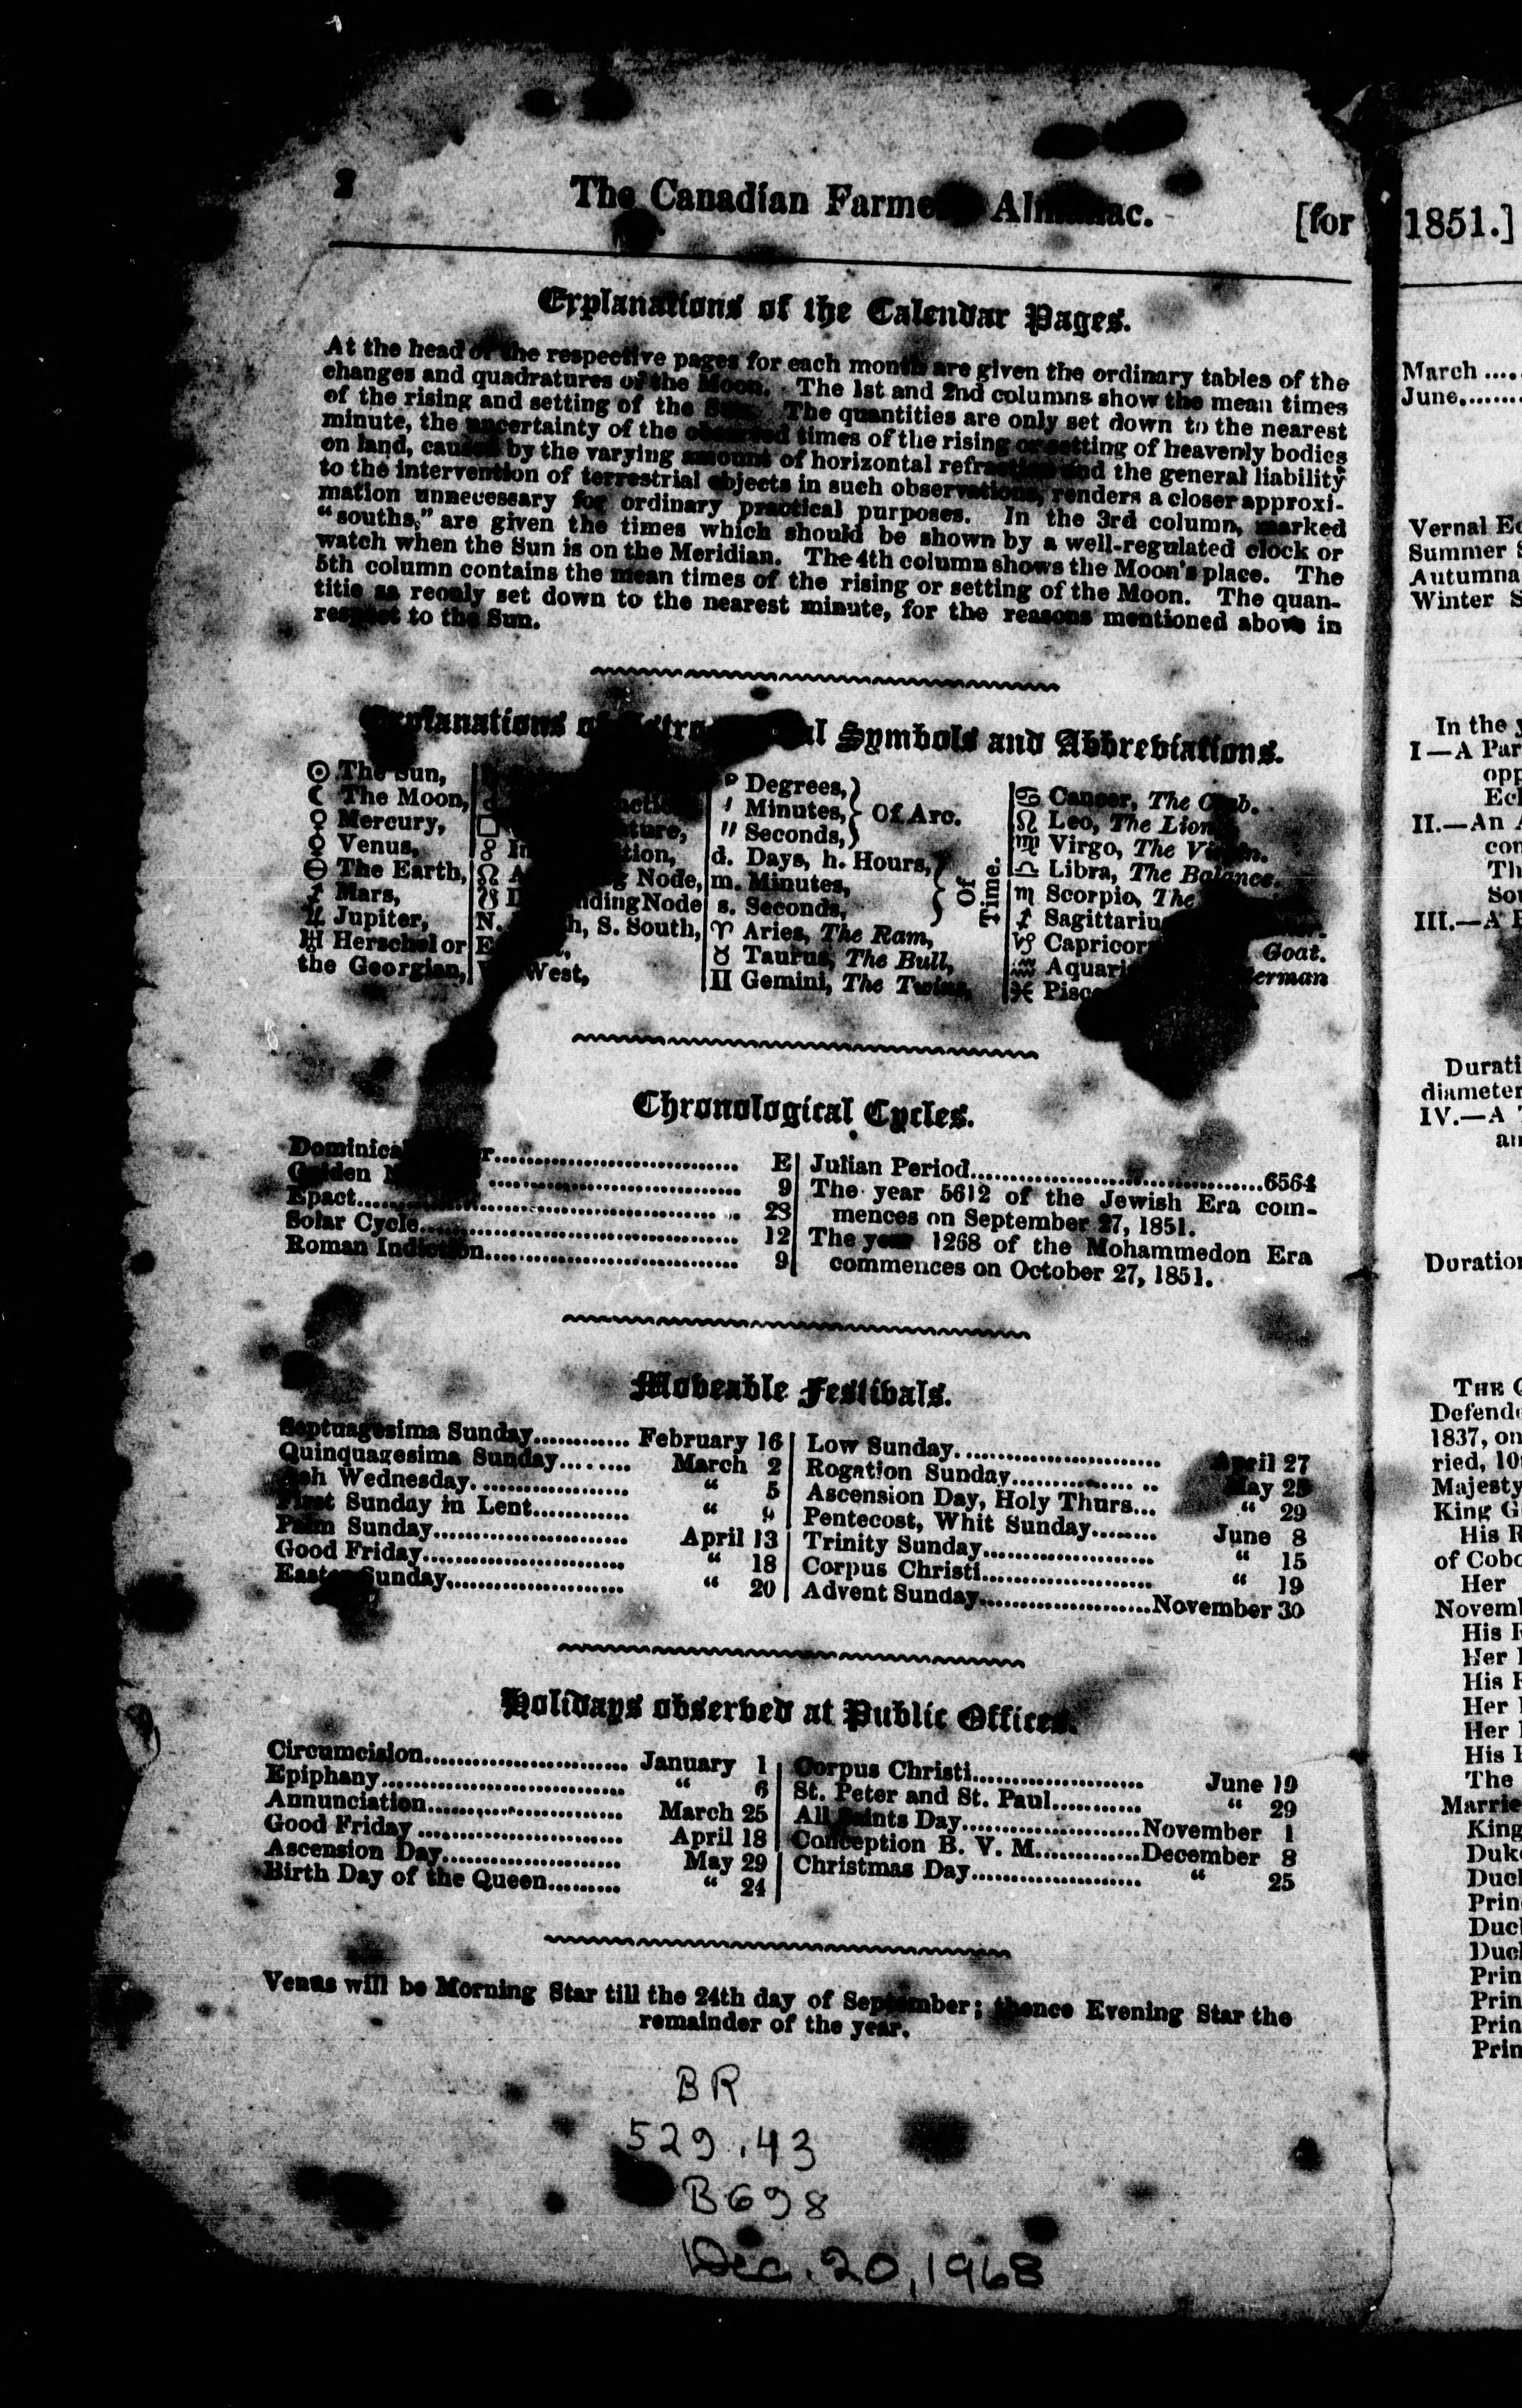 2 The Canadian Farme Al ac. [for
Explanations of the Calendar Pages.
At the head of the respective pages for each month are given the ordinary tables of the
changes and quadratures of the Moon. The 1st and 2nd columns show the mean times
of the rising and setting of the Sun. The quantities are only set down to the nearest
minute, the uncertainty of the observed times of the rising or setting of heavenly bodies
on land, caused by the varying amount of horizontal refraction and the general liability
to the intervention of terrestrial objects in such observations, renders a closer approxi-
mation unnecessary for ordinary practical purposes. In the 3rd column, marked
"souths," are given the times which should be shown by a well-regulated clock or
watch when the Sun is on the Meridian. The 4th column shows the Moon's place. The
5th column contains the mean times of the rising or setting of the Moon. The quan-
titie as reonly set down to the nearest minute, for the reasons mentioned above in
respect to the Sun.
Explanations of Symbols and Abbreviations.
☉ The Sun,
☾ The Moon,
☿ Mercury,
♀ Venus,
⊖ The Earth,
♂ Mars,
♃ Jupiter,
♅ Herschel or
the Georgian,
□ ture,
☍ In tion,
☊ A g Node,
☋ D ndingNode
N. h, S. South,
E
West,
° Degrees,
′ Minutes, Of Arc.
″ Seconds,
d. Days, h. Hours,
m. Minutes, Of Time.
s. Seconds,
♈ Aries, The Ram,
♉ Taurus, The Bull,
♊ Gemini, The Twins,
♋ Cancer, The Crab.
♌ Leo, The Lion
♍ Virgo, The Virgin.
♎ Libra, The Balance.
♏ Scorpio, The
♐ Sagittariu
♑ Capricor Goat.
♒ Aquari erman
♓ Pisc
Chronological Cycles.
Dominical r.............................. E
Golden N .............................. 9
Epact.............................. 28
Solar Cycle.............................. 12
Roman Indiction.............................. 9
Julian Period..............................6564
The year 5612 of the Jewish Era com-
mences on September 27, 1851.
The year 1268 of the Mohammedon Era
commences on October 27, 1851.
Moveable Festivals.
Septuagesima Sunday............ February 16
Quinquagesima Sunday......... March 2
Ash Wednesday................... " 5
First Sunday in Lent............ " 9
Palm Sunday........................ April 13
Good Friday......................... " 18
Easter Sunday...................... " 20
Low Sunday.......................... April 27
Rogation Sunday.................. May 25
Ascension Day, Holy Thurs... " 29
Pentecost, Whit Sunday........ June 8
Trinity Sunday...................... " 15
Corpus Christi...................... " 19
Advent Sunday......................November 30
Holidays observed at Public Offices.
Circumcision.......................... January 1
Epiphany............................... " 6
Annunciation......................... March 25
Good Friday .......................... April 18
Ascension Day....................... May 29
Birth Day of the Queen......... " 24
Corpus Christi...................... June 19
St. Peter and St. Paul........... " 29
All Saints Day.......................November 1
Conception B. V. M.............December 8
Christmas Day...................... " 25
Venus will be Morning Star till the 24th day of September; thence Evening Star the
remainder of the year.
BR
529.43
B698
Dec. 20, 1968
1851.]
March .....
June........
Vernal
Summer
Winter
In the
I—A Par
II.—An
III.—A
diameter
IV.—A
Duration
THE
1837, on
ried,
Majesty
King
His
of
Her
His
Her
His
Her
Her
His
The
King